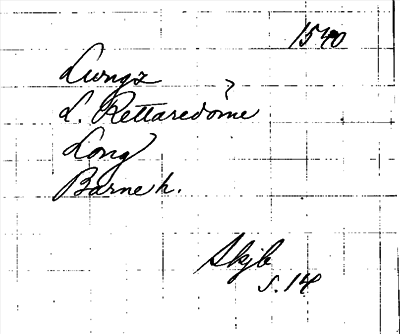 1540
Lwngz
L. Rettaredome ?
Long
Barne h.
Skjb
s. 14